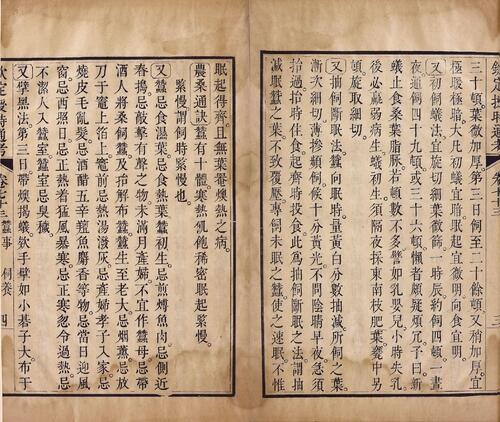 三十頓葉微加厚第三日飼至二十餘頓又稍加厚宜
極暖極暗大凡初蟻宜暗眠起宜微明向食宜明
又初飼蟻法宜旋切細葉微篩一時辰約飼四頓一晝
夜通飼四十九頓或三十六頓懶者頗疑頻冗予曰新
蟻止食桑葉脂脈若頓數不多譬如乳嬰兒小時失乳
後必羸弱病生蟻初生須隔夜採東南枝肥葉甕中另
頓旋取細切
又抽飼斷眠法蠶向眠時量黃白分數抽減所飼之葉
漸次細切薄摻頻飼候十分黃光不問陰晴早夜急須
抬過抬時住食起齊時投食此為抽飼斷眠之法謂抽
減眠蠶之葉不致覆壓專飼未眠之蠶使之速眠不惟
眠起得齊且無葉罨燠熱之病
農桑通訣蠶有十體寒熱飢飽稀密眠起緊慢
緊慢謂飼時緊慢也
又蠶忌食濕葉忌食熱葉蠶初生忌煎煿魚肉忌側近
舂搗忌敲擊有聲之物未滿月產婦不宜作蠶母忌帶
酒人將桑飼蠶及抬解布蠶蠶生至老大忌烟薰忌放
刀于竈上箔上竈前忌熱湯潑灰忌產婦孝子入家忌
燒皮毛亂髮忌酒醋五辛羶魚麝香等物忌當日迎風
窗忌西照日忌正熱着猛風暴寒忌正寒忽令過熱忌
不潔人入蠶室蠶室忌臭穢
又擘黑法第三日帶燠揭蟻欻手擘如小碁子大布于
欽定授時通考 卷七十三 蠶事 飼養 四